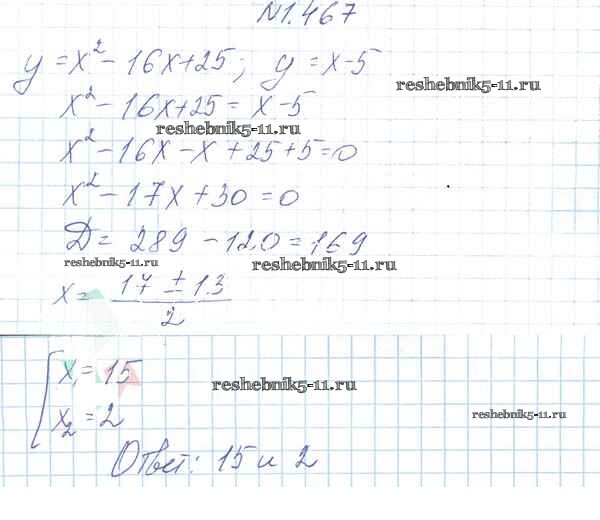 №1.467
y = x² - 16x + 25; y = x - 5
reshebnik5-11.ru
x² - 16x + 25 = x - 5
reshebnik5-11.ru
x² - 16x - x + 25 + 5 = 0
x² - 17x + 30 = 0
D = 289 - 120 = 169
reshebnik5-11.ru
reshebnik5-11.ru
x = (17 ± 13)/2
x₁ = 15
reshebnik5-11.ru
x₂ = 2
reshebnik5-11.ru
Ответ: 15 и 2